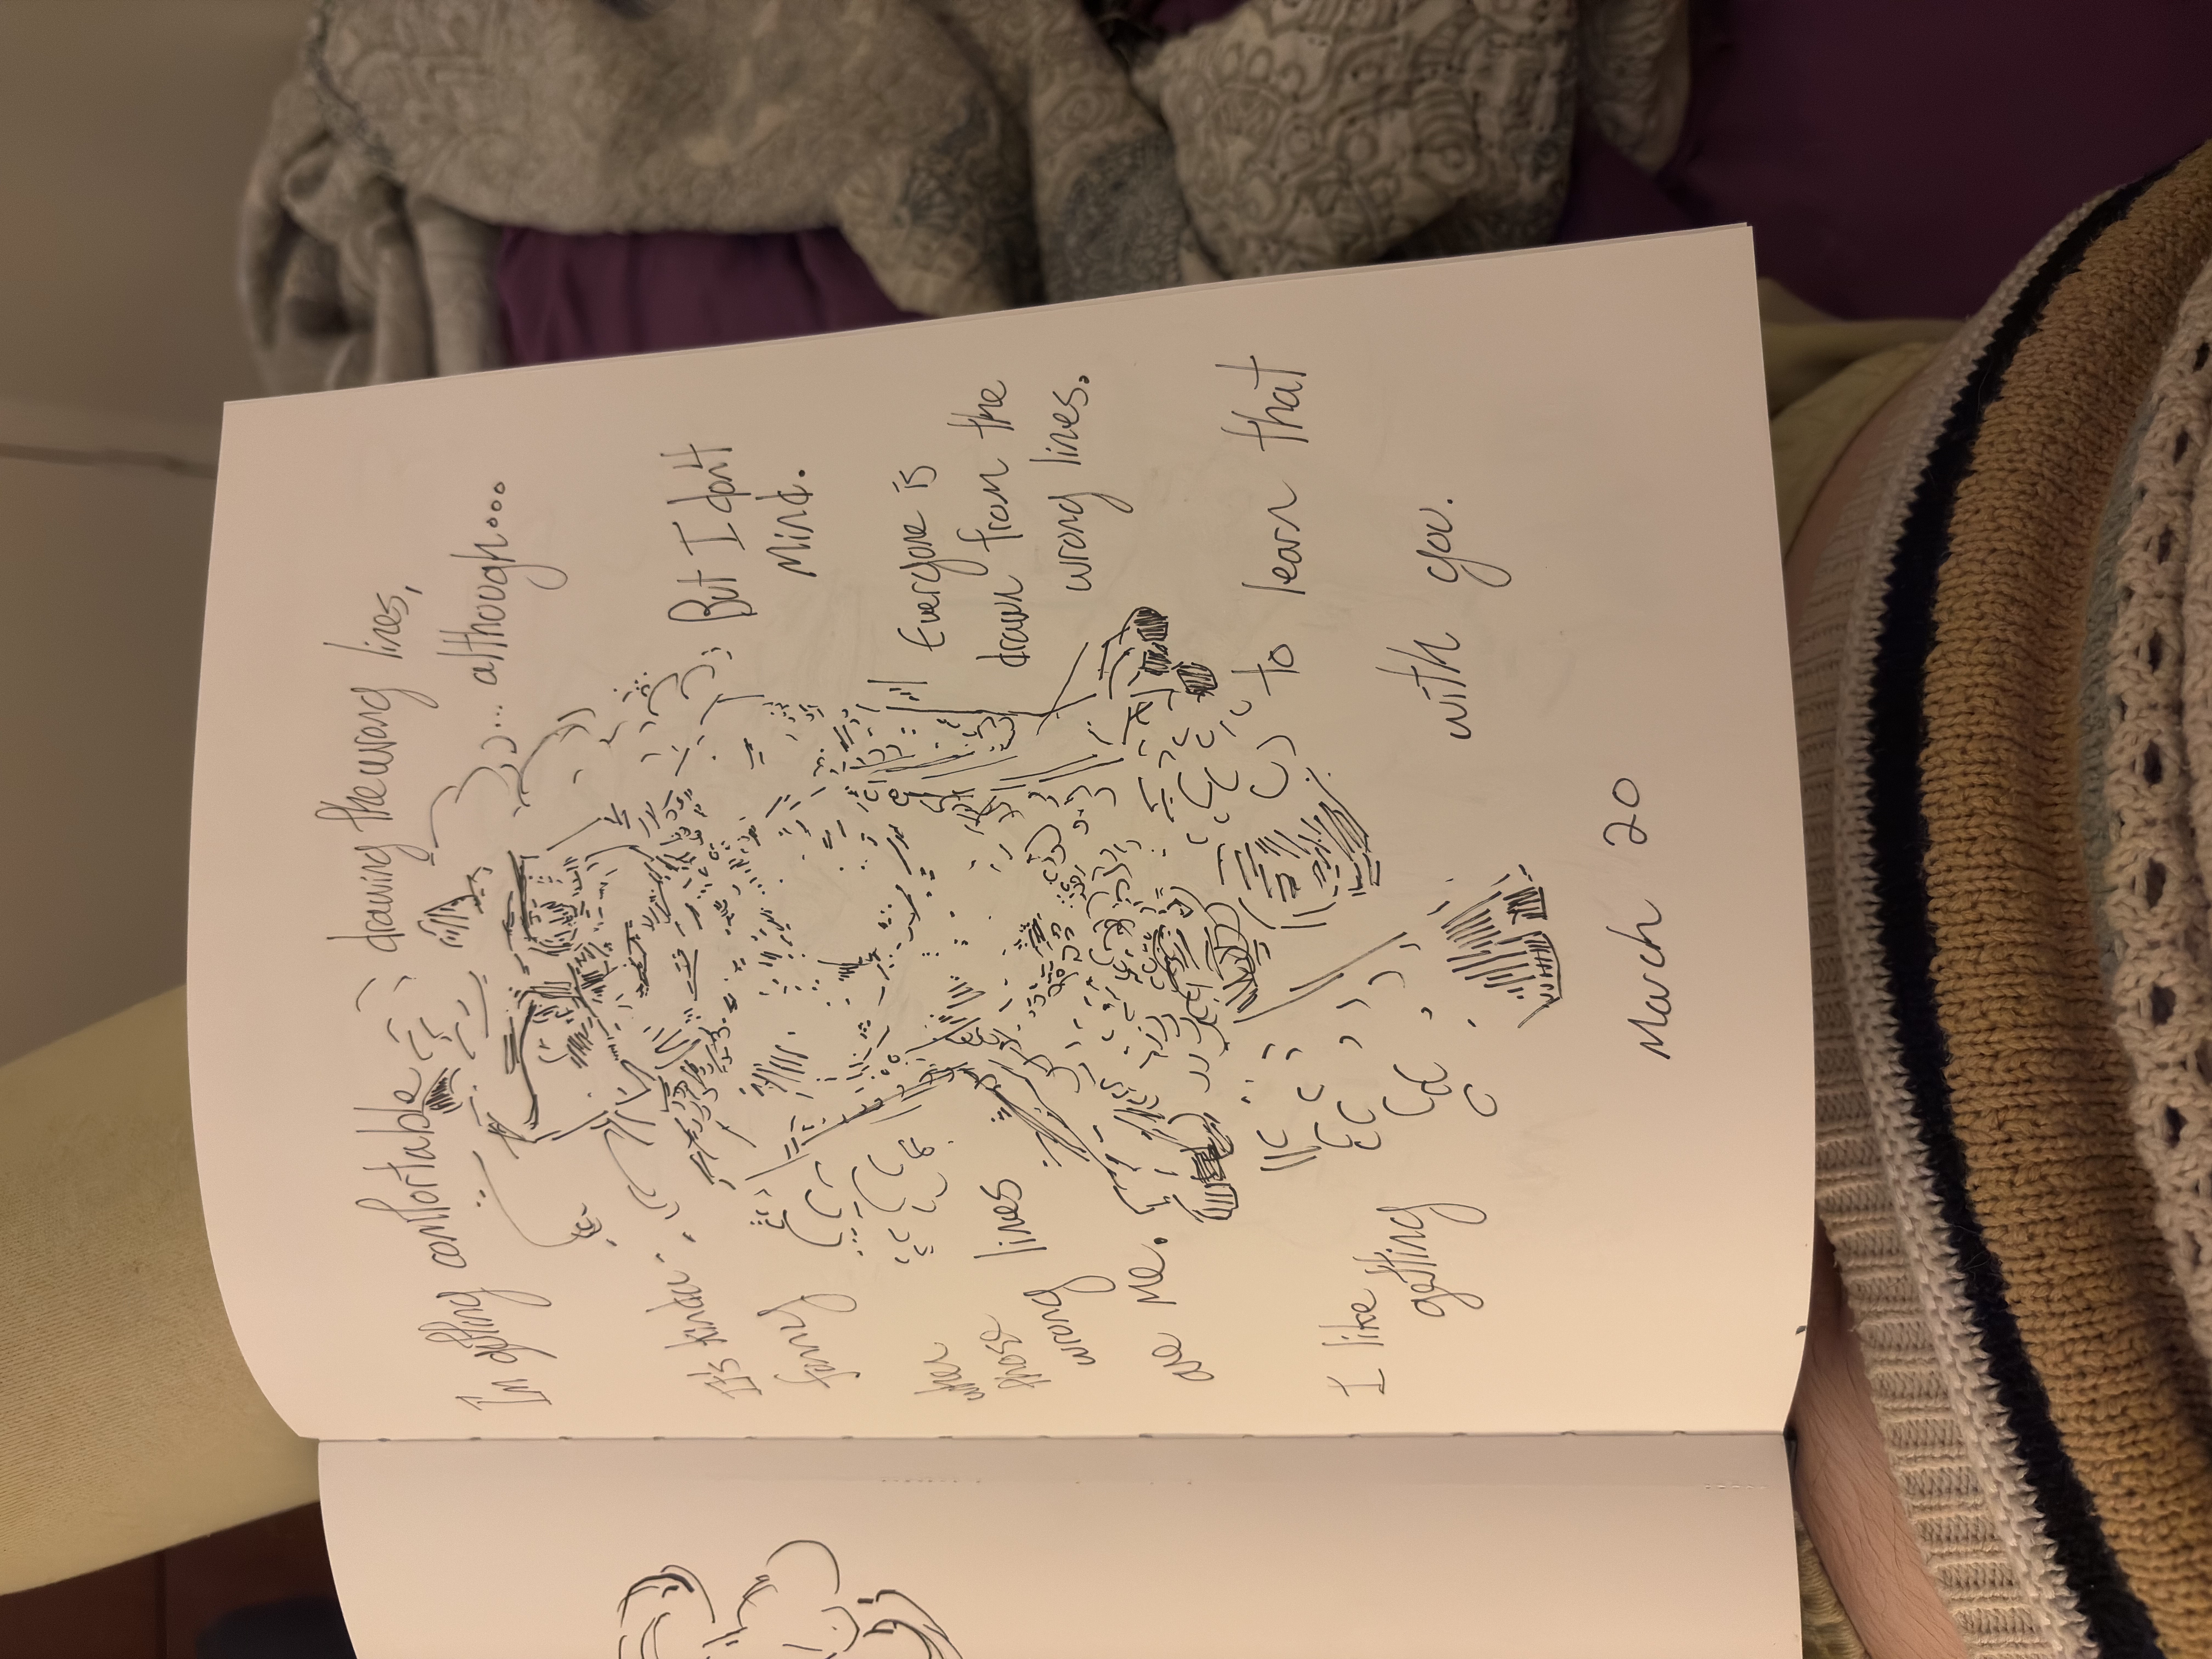 I'm getting comfortable drawing the wrong lines,
... although...
It's kinda
funny
But I don't
mind.
when
those
wrong lines
are me.
Everyone is
drawn from the
wrong lines.
I like
getting
to learn that
with you.
March 20